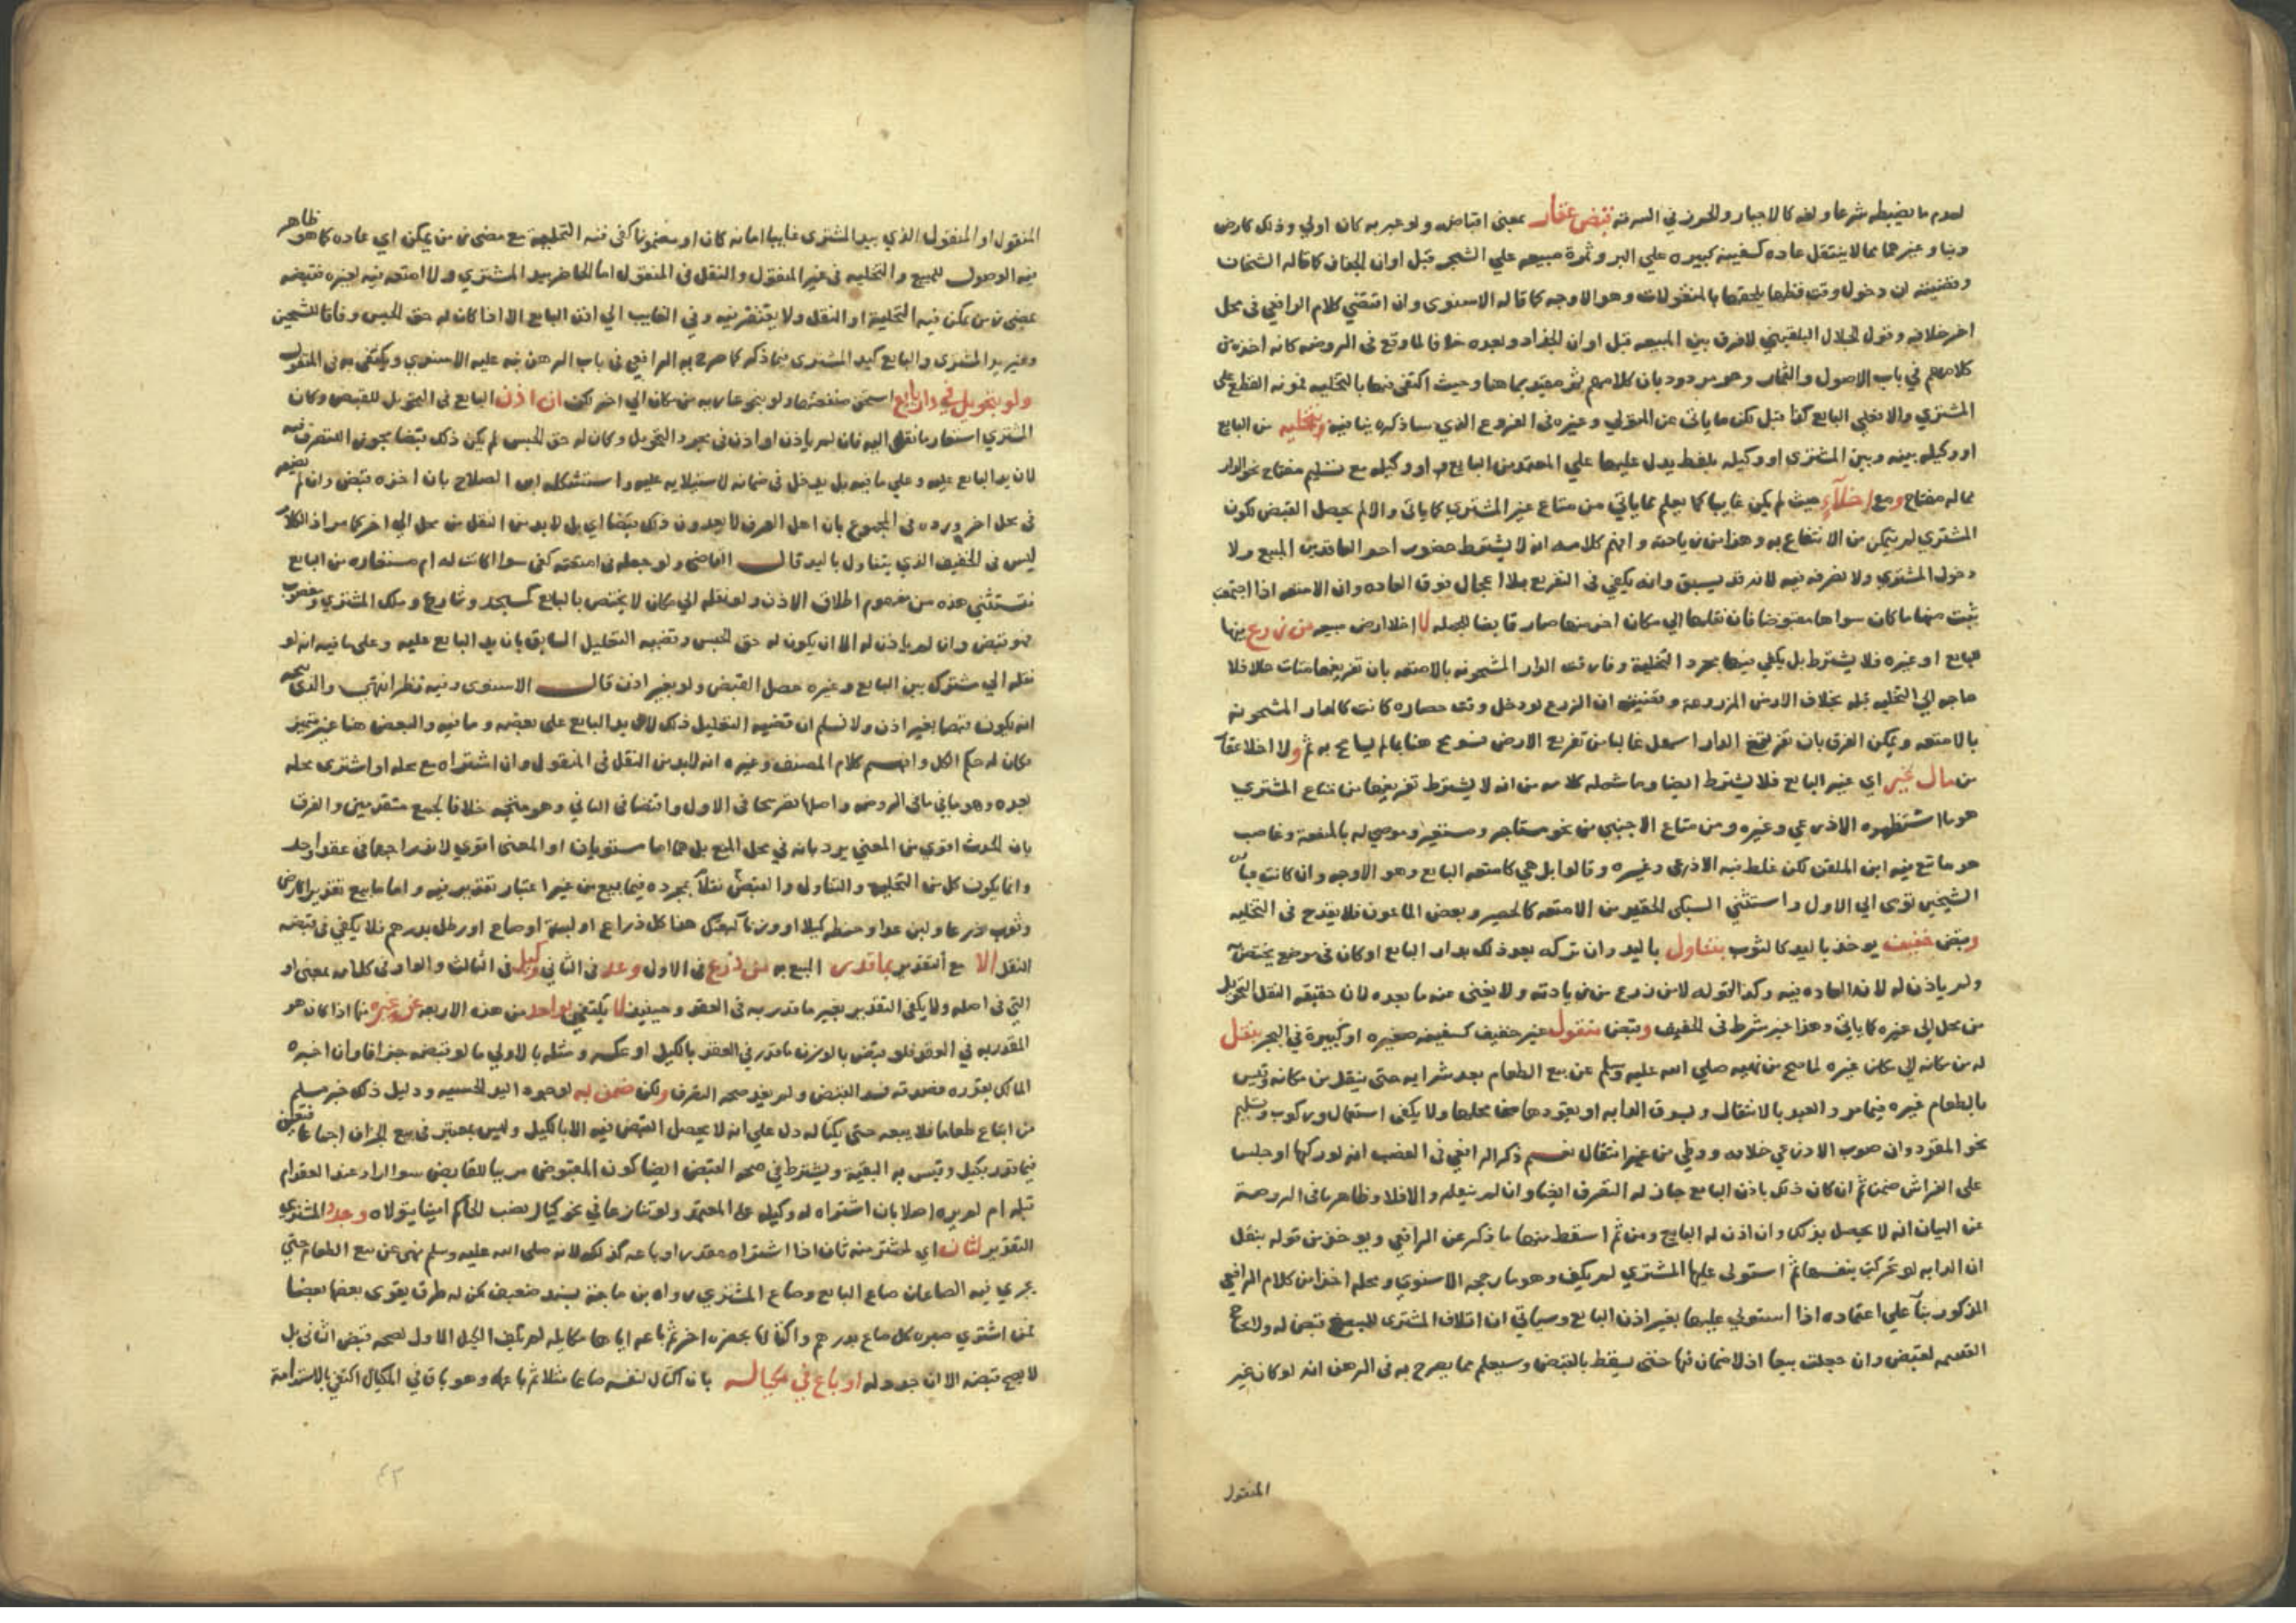 لعدم ما يضبطه شرعا ولغة كالاحيار والحرز في السرقة قبض عقار بمعنى اقباض ولو عبر به كان اولي وذلك كارض
وبنا وغيرهما مما لا ينتقل عاده كسفينه كبيره علي البر وثمرة مبيعه علي الشجر قبل اوان الجذاذ كما قاله الشيخان
وقضيته ان دخول وقت قطعها يلحقها بالمنقولات وهو الاوجه كما قاله الاسنوى وان اقتضي كلام الرافعي فى محل
اخر خلافه وقول الجلال البلقيني لا فرق بين المبيعه قبل اوان الجذاذ وبعده خلافا لما وقع فى الروضه كانه اخذه من
كلامهم في باب الاصول والثمار وهو مردود بان كلامهم ثم مقيد بما هنا وحيث اكتفى فيها بالتخليه فمونه القطع على
المشتري والا فعلي البايع كذا قيل لكن ما ياتى عن المتولي وغيره فى الفروع الذي ساذكره ينافيه وبتخليه من البايع
او وكيله بينه وبين المشترى او وكيله بلفظ يدل عليها علي المعتمد من البايع او وكيله مع تسليم مفتاح نحو الدار
مما له مفتاح ومع اخلآء حيث لم يكن غايبا كما يعلم مما ياتي من متاع غير المشتري كما ياتى والا لم يحصل القبض لكون
المشتري لم يتمكن من الانتفاع به وهذا من زيادته وافهم كلامه انه لا يشترط حضور احد العاقدين المبيع ولا
دخول المشتري ولا تصرفه فيه لانه قد يسبق وانه يكفي فى التفريع بلا اعجال فوق العاده وان الامتعه اذا اجتمعت
ببيت منها ما كان سواها مقبوضا فان نقلها الي مكان اخر منها صار قابضا للجمله لا اخلا ارض مبيعه من زرع فيها
للبايع او غيره فلا يشترط بل يكفي فيها مجرد التخلية وفارقت الدار المشحونه بالامتعه بان تفريغها متات حالا فلا
حاجه الي التخليه قبله بخلاف الارض المزروعة وقضيته ان الزرع لو دخل وقت حصاده كانت كالدار المشحونه
بالامتعه ويمكن الفرق بان تفريغ الدار اسهل غالبا من تفريع الارض فسومح هنا بما لم يسامح به ثم ولا اخلا عقار
من مال غير اي غير البايع فلا يشترط ايضا وما شمله كلامه من انه لا يشترط تفريغها من متاع المشتري
هو ما استظهره الاذرعي وغيره ومن متاع الاجنبي من نحو مستاجر ومستعير وموصي له بالمنفعة وغاصب
هو ما تبع فيه ابن الملقن لكن غلط فيه الاذرعى وغيره وقالوا بل هي كامتعه البايع وهو الاوجه وان كانت عبارة
الشيخين تومى الي الاول واستثني السبكى الحقير من الامتعه كالحصير وبعض الماعون فلا يقدح فى التخليه
وقبض خفيف يوخذ باليد كالثوب بتناول باليد وان تركه بعد ذلك بدار البايع او كان فى موضع يختص به
ولم ياذن له لانه العاده فيه وكذا قوله لا من زرع من زيادته ولا يغنى عنه ما بعده لان حقيقه النقل التحويل
من محل الي غيره كما ياتى وهذا غير شرط فى الخفيف وقبض منقول غير خفيف كسفينه صغيره او كبيرة في البحر بنقل
له من مكانه الي مكان غيره لما صح من نهيه صلي الله عليه وسلم عن بيع الطعام بعد شرايه حتى ينقل من مكانه وقيس
بالطعام غيره فيامر العبد بالانتقال وبسوق الدابه او يقودها معها بحلها ولا يكفى استعمال وركوب وتسليم
نحو المقود وان صوب الاذرعي خلافه ووطي من غير انتقال نعم ذكر الرافعي فى الغصب انه لو ركبها او جلس
على الفراش ضمن ثم ان كان ذلك باذن البايع جاز له التصرف ايضا وان لم ينقله والا فلا وظاهر ما فى الروضة
عن البيان انه لا يحصل بذلك وان اذن له البايع ومن ثم اسقط منها ما ذكر عن الرافعي ويوخذ من قوله بنقل
ان الدابه لو تحركت بنفسها ثم استولى عليها المشتري لم يكف وهو ما رجحه الاسنوى ومحله اخذا من كلام الرافعى
المذكور بنآ علي اعتماده اذا استولي عليها بغير اذن البايع وسياتي ان اتلاف المشترى للمبيع قبض له ولا يحتاج
القسمه لقبض وان جعلت بيعا اذ لا ضمان فيها حتى يسقط بالقبض وسيعلم مما يصرح به فى الرهن انه لو كان غير
المنقول
المنقول او المنقول الذي بيد المشترى غايبا امانه كان او مضمونا كفى فيه التخليه مع مضى زمن يمكن اي عاده كما هو ظاهر
فيه الوصول للمبيع والتخليه فى غير المنقول والنقل فى المنقول اما الحاضر بيد المشتري ولا امتعه فيه لغيره فقبضه
بمضى زمن يمكن فيه التخلية او النقل ولا يفتقر فيه وفي الغايب الي اذن البايع الا اذا كان له حق الحبس وفاقا للشيخين
وغير يد المشترى والبايع كيد المشترى فيما ذكر كما صرح به الرافعي فى باب الرهن نبه عليه الاسنوي ويكتفى به فى المنقول
ولو بتحويل في دار بايع استحق منفعتها ولو بنحو عاريه من مكان الي اخر لكن ان اذن البايع فى التحويل للقبض وكان
المشتري استعار ما نقل اليه فان لم ياذن او اذن في مجرد التحويل وكان له حق الحبس لم يكن ذلك قبضا يجوز التصرف فيه
لان يد البايع عليه وعلي ما فيه بل يدخل فى ضمانه لاستيلايه عليه واستشكله ابن الصلاح بان اخذه قبض وان لم يضعه
فى محل اخر ورده فى المجموع بان اهل العرف لا يعدون ذلك قبضا اي بل لا بد من النقل من محل الي اخر كما مر اذ الكلام
ليس فى الخفيف الذي يتناول باليد قال القاضى ولو جعله فى امتعته كفى سوا اكانت له ام مستعاره من البايع
فتستثني هذه من مفهوم اطلاق الاذن ولو نقله الي مكان لا يختص بالبايع كمسجد وشارع وملك المشتري ومغصوب
فهو قبض وان لم ياذن له الا ان يكون له حق الحبس وقضيه التعليل السابق بان يد البايع عليه وعلى ما فيه انه لو
نقله الي مشترك بين البايع وغيره حصل القبض ولو بغير اذن قال الاسنوى وفيه نظر انتهى والذى يتجه
انه لا يكون قبضا بغير اذن ولا نسلم ان قضيه التعليل ذلك لان يد البايع على بعضه وما فيه والبعض هنا غير متميز
فكان له حكم الكل وافهم كلام المصنف وغيره انه لا بد من النقل فى المنقول وان اشتراه مع محله او اشترى محله
بعده وهو ما في الروضه واصلها تصريحا فى الاول واقتضا فى الثاني وهو متجه خلافا لجمع متقدمين والفرق
بان الحدث اقوي من المعني يرد بانه في محل المنع بل هما اما مستويان او المعنى اقوي لانه راجعا فى عقد واحد
وانما يكون كل من التخليه والتناول والقبض نقلا بمجرده فيما بيع من غير اعتبار تقدير فيه واما ما بيع تقديرا كارض
وثوب ذرعا ولبن عدا وحنطه كيلا او وزنا كبعتك هنا كل ذراع او لبنه او صاع او رطل بدرهم فلا يكفي فى قبضه
النقل الا مع التقدير بما قدر المبيع به من ذرع فى الاول وعد فى الثاني وكيل فى الثالث والواو فى كلامه بمعنى او
التي فى اصله ولا يكفى التقدير بغير ما قدر به فى العقد وحينيذ لا يكتفي بواحد من هذه الاربعه عن غيره فيما اذا كان هو
المقدر به في العقد فلو قبض بالوزن ما قدر في العقد بالكيل او عكسه ومثله بالاولي ما لو قبضه جزافا وان اخبره
المالك بقدره فصدقه فسد القبض ولم يفد صحه التصرف ولكن ضمن به لوجود اليد الحسيه ودليل ذلك خبر مسلم
من ابتاع طعاما فلا يبعه حتى يكتاله دل علي انه لا يحصل القبض فيه الا بالكيل وليس بمعتبر فى بيع الجزاف اجماعا فتعين
فيما قدر بكيل وقيس به البقية ويشترط في صحه القبض ايضا كون المقبوض مرييا للقابض سوا راه عند العقد ام
قبله ام لم يره اصلا بان اشتراه له وكيله على المعتمد ولو تنازعا في نحو كيال نصب الحاكم امينا يتولاه وجدد المشتري
التقدير لثان اي لمشتر منه ثان اذا اشتراه مقدرا وباعه كذلك لانه صلى الله عليه وسلم نهى عن بيع الطعام حتي
يجري فيه الصاعان صاع البايع وصاع المشتري رواه ابن ماجة بسند ضعيف لكن له طرق يقوى بعضها بعضا
فمن اشتري صبره كل صاع بدرهم واكتالها بحضره اخر ثم باعه اياها مكايله لم يكف الكيل الاول لصحه قبض الثانى بل
لا يصح قبضه الا ان جدد له او باع في مكياله بان اكتال لنفسه صاعا مثلا ثم باعه وهو باق في المكيال اكتفي بالاستدامة
٤٢